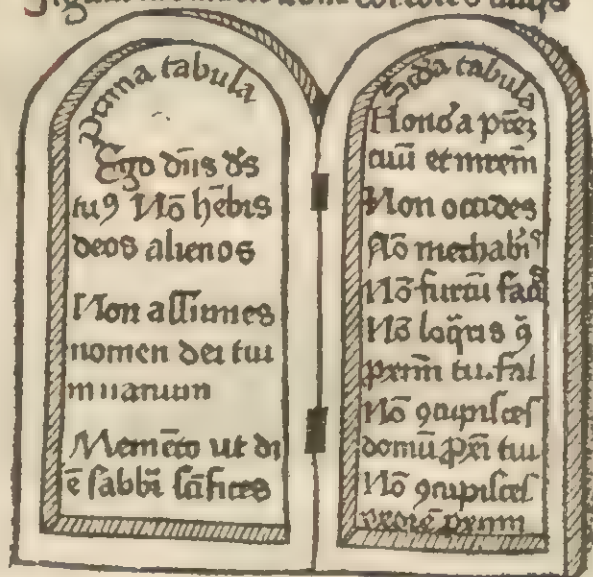 Prima tabula
Ego dñs ds
tuꝰ Nō hēbis
deos alienos
Non assumes
nomen dei tui
in uanum
Memēto ut di
ē sabbī scīfices
Scďa tabula
Honoᵃra pr̄eꝫ
tuū et mr̄em
Non occides
Nō mechabis
Nō furtū fac̄
Nō loq̄ris
ꝓxim̄ tu. fal
Nō ꝯcupisces
domū ꝓxī tui
Nō ꝯcupisces
vxorē ꝓxim